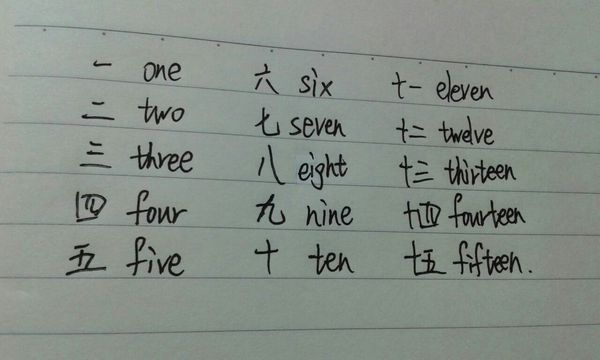 一 one 六 six 十一 eleven
二 two 七 seven 十二 twelve
三 three 八 eight 十三 thirteen
四 four 九 nine 十四 fourteen
五 five 十 ten 十五 fifteen.